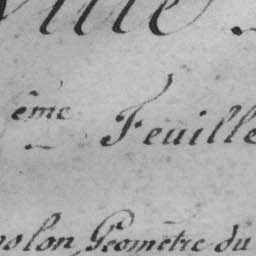 ville
ème Feuille
olon Géomètre du